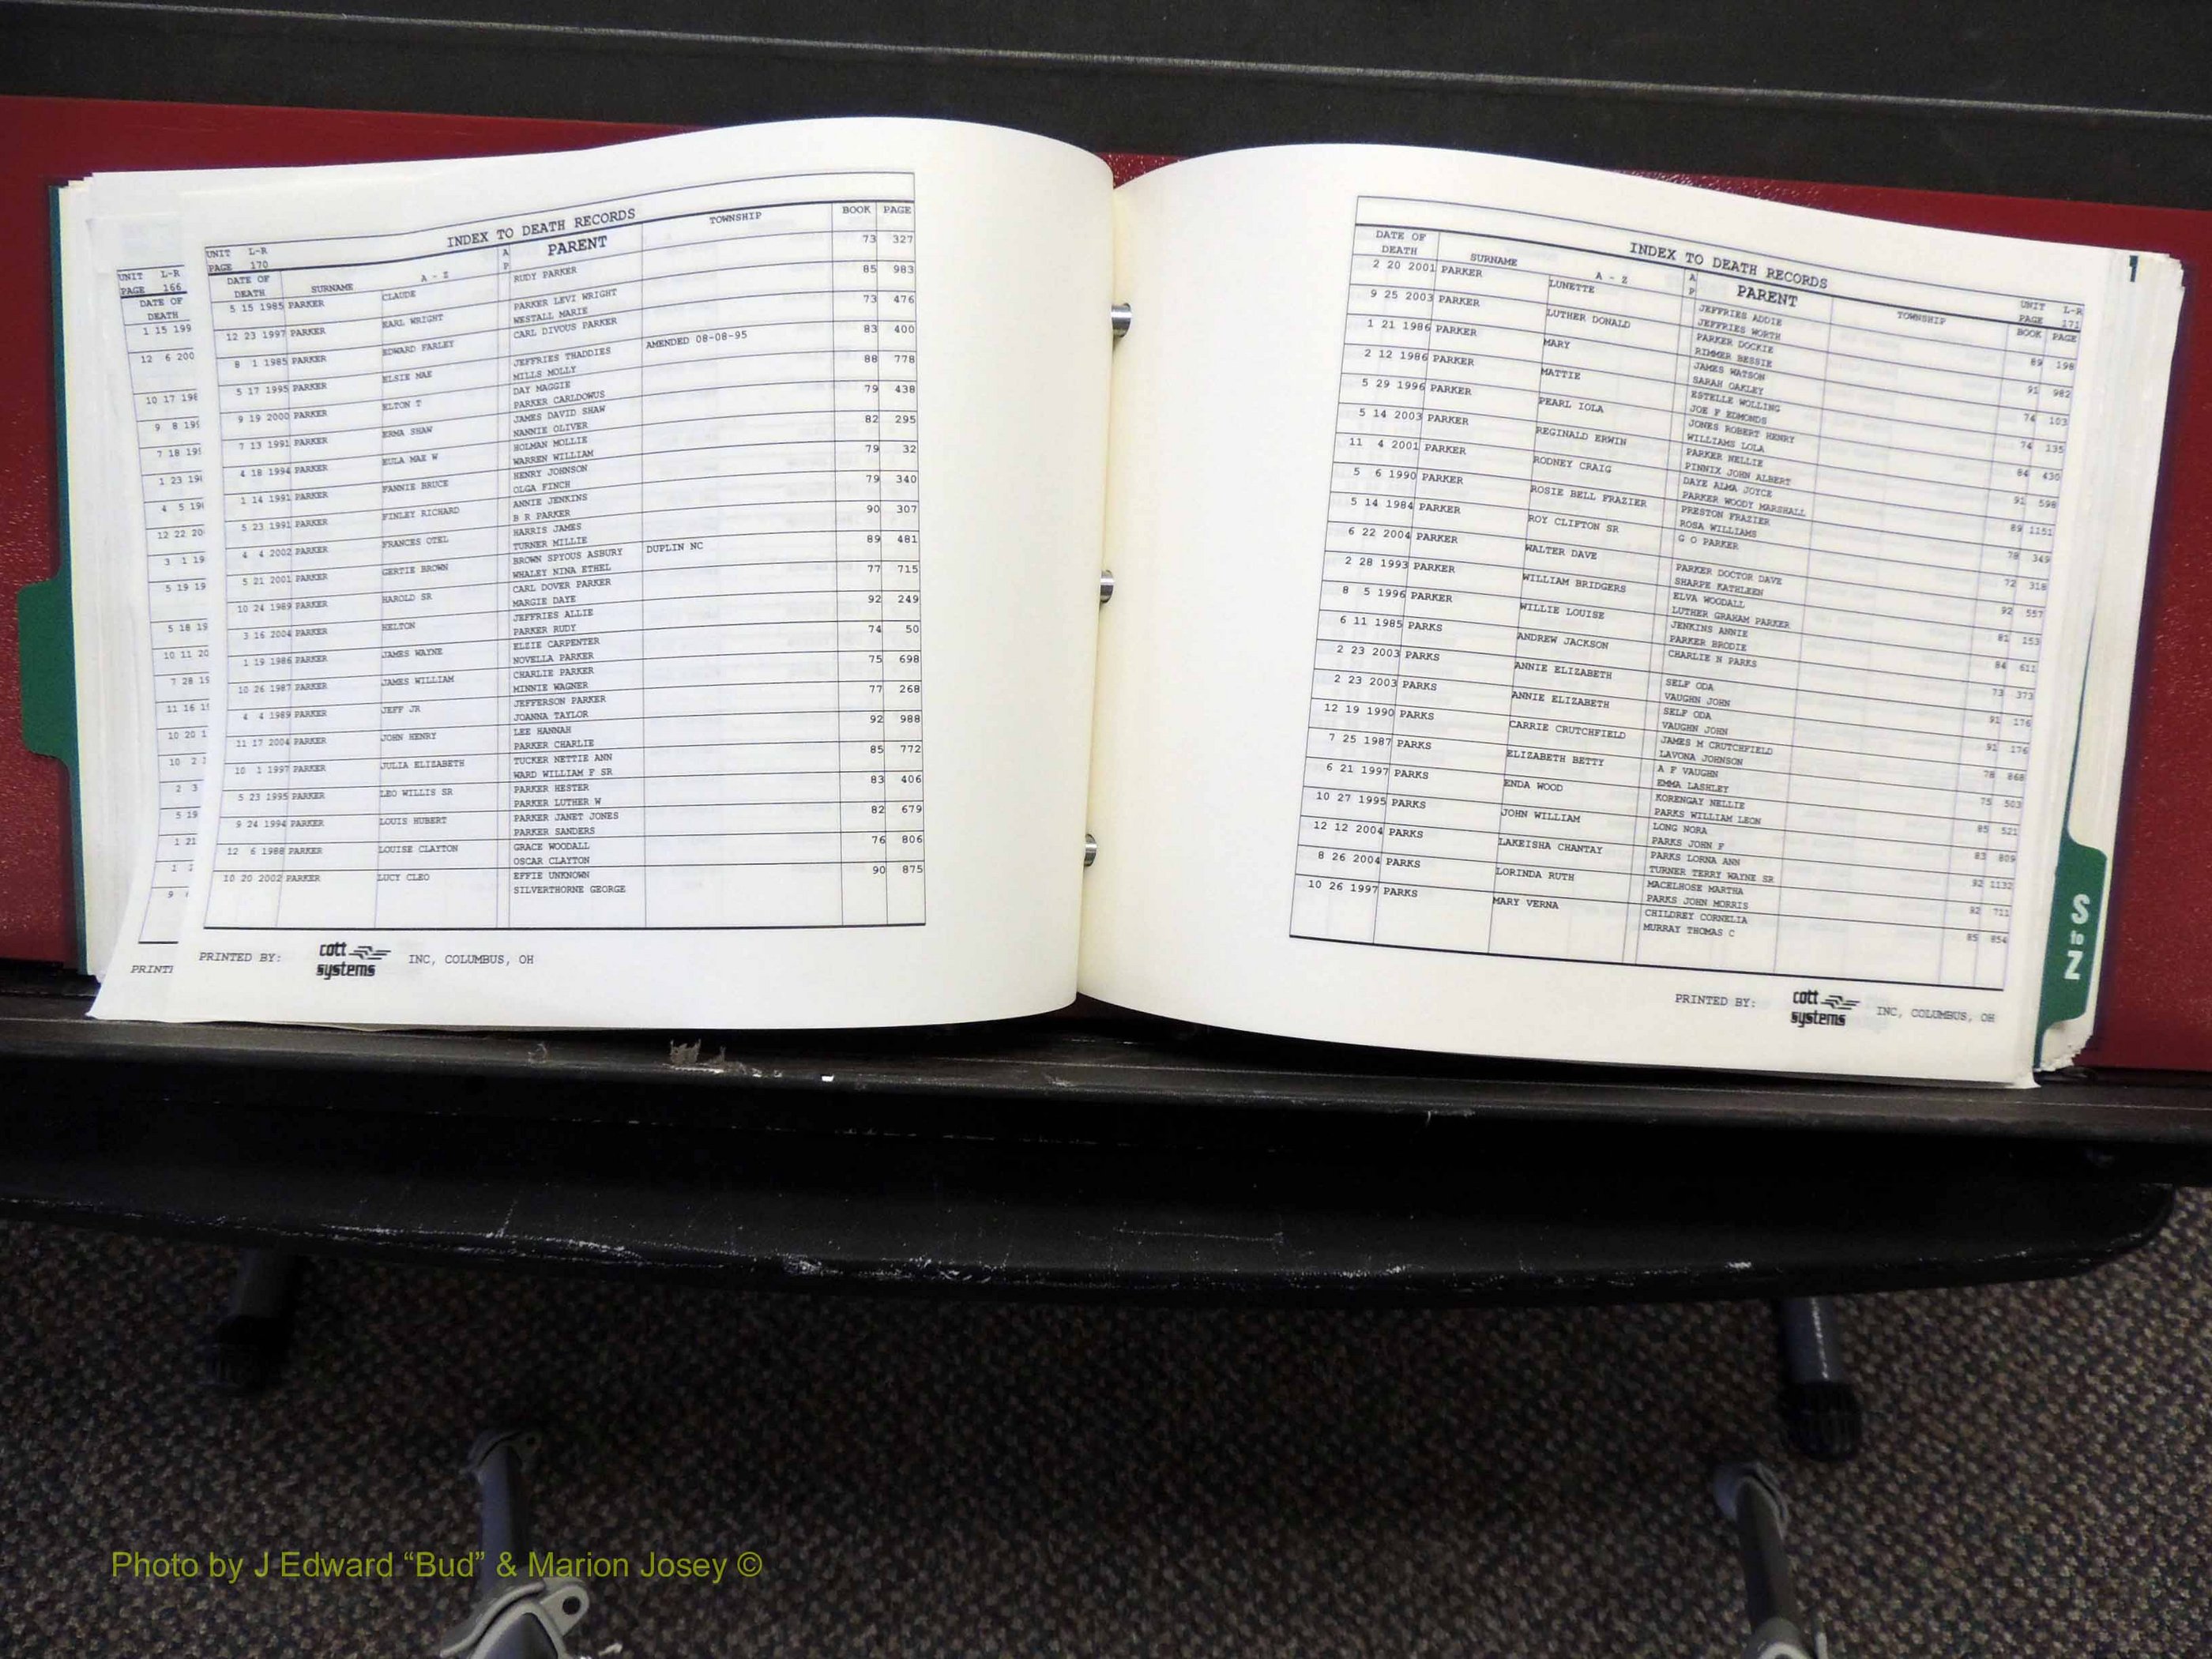 UNIT L-R
PAGE 166
DATE OF
DEATH
1 15 199
12 6 200
10 17 198
9 8 19
7 18 19
1 23 19
4 5 19
12 22 20
3 1 19
5 19 19
5 18 19
10 11 20
7 28 19
11 16 1
10 20 1
10 2
2 3
5 19
1 21
PRINT
INDEX TO DEATH RECORDS
UNIT L-R
PAGE 170
DATE OF DEATH SURNAME A - Z A P PARENT TOWNSHIP BOOK PAGE
5 15 1985 PARKER CLAUDE RUDY PARKER 73 327
12 23 1997 PARKER EARL WRIGHT PARKER LEVI WRIGHT 85 983
WESTALL MARIE
8 1 1985 PARKER EDWARD FARLEY CARL DIVOUS PARKER 73 476
5 17 1995 PARKER ELSIE MAE JEFFRIES THADDIES AMENDED 08-08-95 83 400
MILLS MOLLY
9 19 2000 PARKER ELTON T DAY MAGGIE 88 778
PARKER CARLDOWUS
7 13 1991 PARKER ERMA SHAW JAMES DAVID SHAW 79 438
NANNIE OLIVER
4 18 1994 PARKER EULA MAE W HOLMAN MOLLIE 82 295
WARREN WILLIAM
1 14 1991 PARKER FANNIE BRUCE HENRY JOHNSON 79 32
OLGA FINCH
5 23 1991 PARKER FINLEY RICHARD ANNIE JENKINS 79 340
B R PARKER
4 4 2002 PARKER FRANCES OTEL HARRIS JAMES 90 307
TURNER MILLIE
5 21 2001 PARKER GERTIE BROWN BROWN SPYOUS ASBURY DUPLIN NC 89 481
WHALEY NINA ETHEL
10 24 1989 PARKER HAROLD SR CARL DOVER PARKER 77 715
MARGIE DAYE
3 16 2004 PARKER HELTON JEFFRIES ALLIE 92 249
PARKER RUDY
1 19 1986 PARKER JAMES WAYNE ELZIE CARPENTER 74 50
NOVELLA PARKER
10 26 1987 PARKER JAMES WILLIAM CHARLIE PARKER 75 698
MINNIE WAGNER
4 4 1989 PARKER JEFF JR JEFFERSON PARKER 77 268
JOANNA TAYLOR
11 17 2004 PARKER JOHN HENRY LEE HANNAH 92 988
PARKER CHARLIE
10 1 1997 PARKER JULIA ELIZABETH TUCKER NETTIE ANN 85 772
WARD WILLIAM F SR
5 23 1995 PARKER LEO WILLIS SR PARKER HESTER 83 406
PARKER LUTHER W
9 24 1994 PARKER LOUIS HUBERT PARKER JANET JONES 82 679
PARKER SANDERS
12 6 1988 PARKER LOUISE CLAYTON GRACE WOODALL 76 806
OSCAR CLAYTON
10 20 2002 PARKER LUCY CLEO EFFIE UNKNOWN 90 875
SILVERTHORNE GEORGE
PRINTED BY: cott systems INC, COLUMBUS, OH
INDEX TO DEATH RECORDS
UNIT L-R
PAGE 171
DATE OF DEATH SURNAME A - Z A P PARENT TOWNSHIP BOOK PAGE
2 20 2001 PARKER LUNETTE JEFFRIES ADDIE 89 198
JEFFRIES WORTH
9 25 2003 PARKER LUTHER DONALD PARKER DOCKIE 91 982
RIMMER BESSIE
1 21 1986 PARKER MARY JAMES WATSON 74 103
SARAH OAKLEY
2 12 1986 PARKER MATTIE ESTELLE WOLLING 74 135
JOE F EDMONDS
5 29 1996 PARKER PEARL IOLA JONES ROBERT HENRY 84 430
WILLIAMS LOLA
5 14 2003 PARKER REGINALD ERWIN PARKER NELLIE 91 598
PINNIX JOHN ALBERT
11 4 2001 PARKER RODNEY CRAIG DAYE ALMA JOYCE 89 1151
PARKER WOODY MARSHALL
5 6 1990 PARKER ROSIE BELL FRAZIER PRESTON FRAZIER 78 349
ROSA WILLIAMS
5 14 1984 PARKER ROY CLIFTON SR G O PARKER 72 318
6 22 2004 PARKER WALTER DAVE PARKER DOCTOR DAVE 92 557
SHARPE KATHLEEN
2 28 1993 PARKER WILLIAM BRIDGERS ELVA WOODALL 81 153
LUTHER GRAHAM PARKER
8 5 1996 PARKER WILLIE LOUISE JENKINS ANNIE 84 611
PARKER BRODIE
6 11 1985 PARKS ANDREW JACKSON CHARLIE N PARKS 73 373
2 23 2003 PARKS ANNIE ELIZABETH SELF ODA 91 176
VAUGHN JOHN
2 23 2003 PARKS ANNIE ELIZABETH SELF ODA 91 176
VAUGHN JOHN
12 19 1990 PARKS CARRIE CRUTCHFIELD JAMES M CRUTCHFIELD 78 868
LAVONA JOHNSON
7 25 1987 PARKS ELIZABETH BETTY A F VAUGHN 75 503
EMMA LASHLEY
6 21 1997 PARKS ENDA WOOD KORENGAY NELLIE 85 521
PARKS WILLIAM LEON
10 27 1995 PARKS JOHN WILLIAM LONG NORA 83 809
PARKS JOHN F
12 12 2004 PARKS LAKEISHA CHANTAY PARKS LORNA ANN 92 1132
TURNER TERRY WAYNE SR
8 26 2004 PARKS LORINDA RUTH MACELHOSE MARTHA 92 711
PARKS JOHN MORRIS
10 26 1997 PARKS MARY VERNA CHILDREY CORNELIA 85 854
MURRAY THOMAS C
PRINTED BY: cott systems INC, COLUMBUS, OH
S
to
Z
Photo by J Edward “Bud” & Marion Josey ©